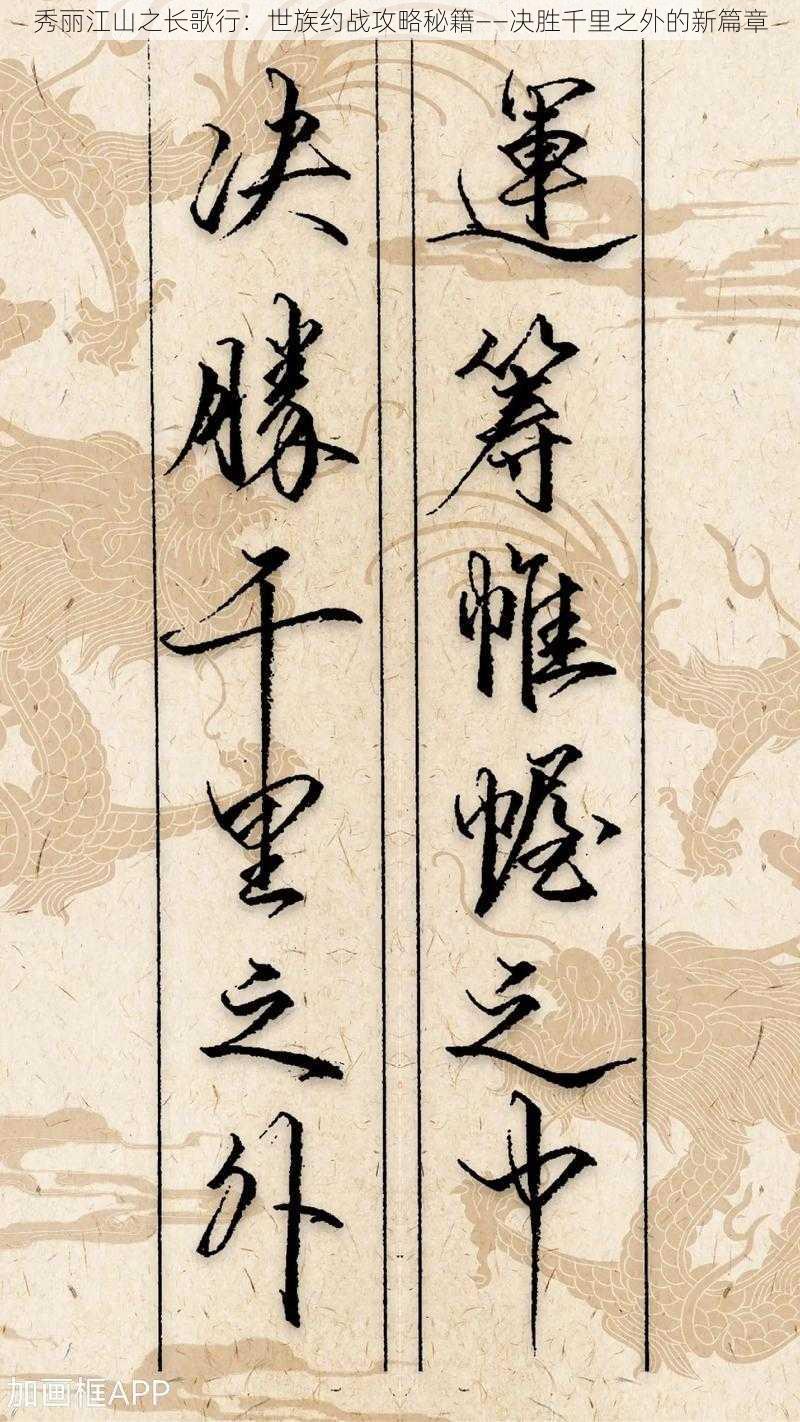 秀丽江山之长歌行：世族约战攻略秘籍——决胜千里之外的新篇章
運筹帷幄之中
决勝千里之外
加画框APP